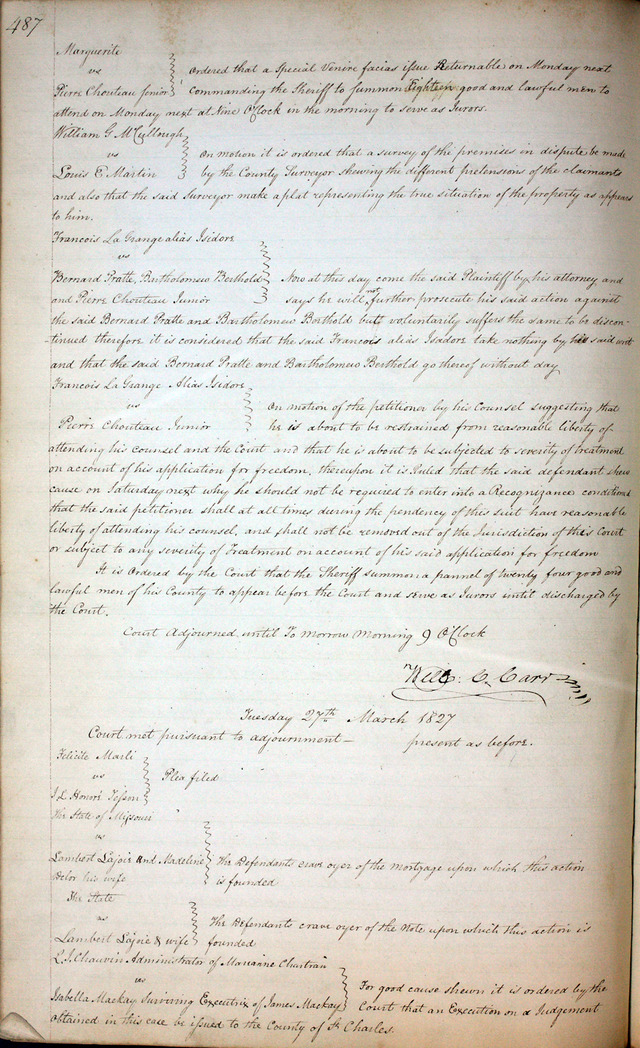 487
Marguerite
vs
Pierre Chouteau Junior
Ordered that a Special Venire facias issue Returnable on Monday next
Commanding the Sheriff to Summon Eighteen good and lawful men to
attend on Monday next at Nine O'Clock in the morning to serve as Jurors.
William G. McCullough
vs
Louis E. Martin
On motion it is ordered that a survey of the premises in dispute be made
by the County Surveyor shewing the different pretensions of the claimants
and also that the said Surveyor make a plat representing the true situation of the property as appears
to him.
Francois La Grange alias Isidore
vs
Bernard Pratte, Bartholomew Berthold
and Pierre Chouteau Junior
Now at this day come the said Plaintiff by his attorney, and
says he will not further prosecute his said action against
the said Bernard Pratte and Bartholomew Berthold but voluntarily suffers the same to be discon-
tinued therefore it is considered that the said Francois alias Isadore take nothing by his said writ
and that the said Bernard Pratte and Bartholomew Berthold go thereof without day
Francois La Grange Alias Isidore
vs
Pierre Chouteau Junior
On motion of the petitioner by his Counsel suggesting that
he is about to be restrained from reasonable liberty of
attending his counsel and the Court and that he is about to be subjected to severity of treatment
on account of his application for freedom, thereupon it is Ruled that the said defendant shew
cause on Saturday next why he should not be required to enter into a Recognizance conditioned
that the said petitioner shall at all times during the pendency of this suit have reasonable
liberty of attending his counsel, and shall not be removed out of the Jurisdiction of this Court
or subject to any severity of treatment on account of his said application for freedom
It is Ordered by the Court that the Sheriff summon a pannel of twenty four good and
lawful men of his County to appear before the Court and serve as Jurors until discharged by
the Court.
Court Adjourned until To morrow Morning 9 O'Clock
Will: C. Carr
Tuesday 27th March 1827
Court met pursuant to adjournment— present as before.
Felicite Marli
vs
J L Honoré Tesson
Plea filed
The State of Missouri
vs
Lambert Lajoie and Madeline
Delor his wife
The Defendants crave oyer of the mortgage upon which this action
is founded
The State
vs
Lambert Lajoie & wife
The Defendants crave oyer of the Note upon which this action is
founded
L. J. Chauvin Administrator of Marianne Chartran
vs
Isabella Mackay Surviving Executrix of James Mackay
For good cause shewn it is ordered by the
Court that an Execution on a Judgement
obtained in this case be issued to the County of St Charles.